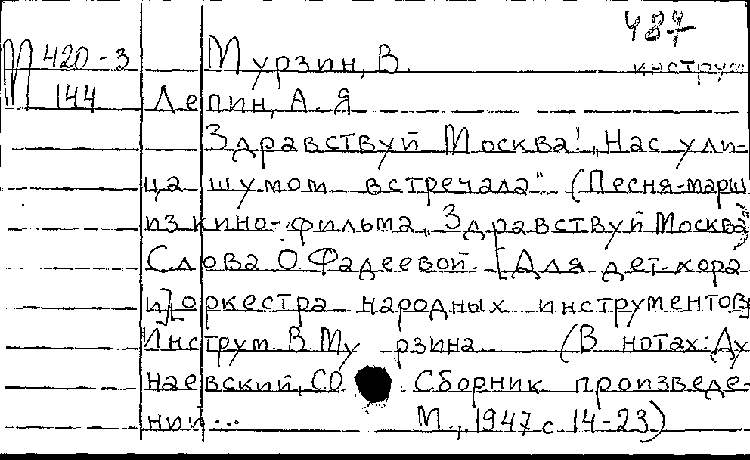 487
М 420-3 Мурзин, В.
инструм
144 Лепин, А. Я
Здравствуй Москва! „Нас ули-
ца шумом встречала" (Песня-марш
из кино-фильма „Здравствуй Москва")
Слова О Фадеевой. [Для дет. хора
и] оркестра народных инструментов
Инструм. В. Мурзина. (В нотах: Ду
наевский, СО . Сборник произведе-
ний... М., 1947 с. 14-23)